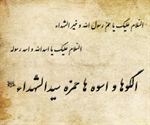 السلام علیک یا عم رسول الله و خیر الشهداء
السلام علیک یا اسد الله و اسد رسوله
الگوها و اسوه ها حمزه سیدالشهداء